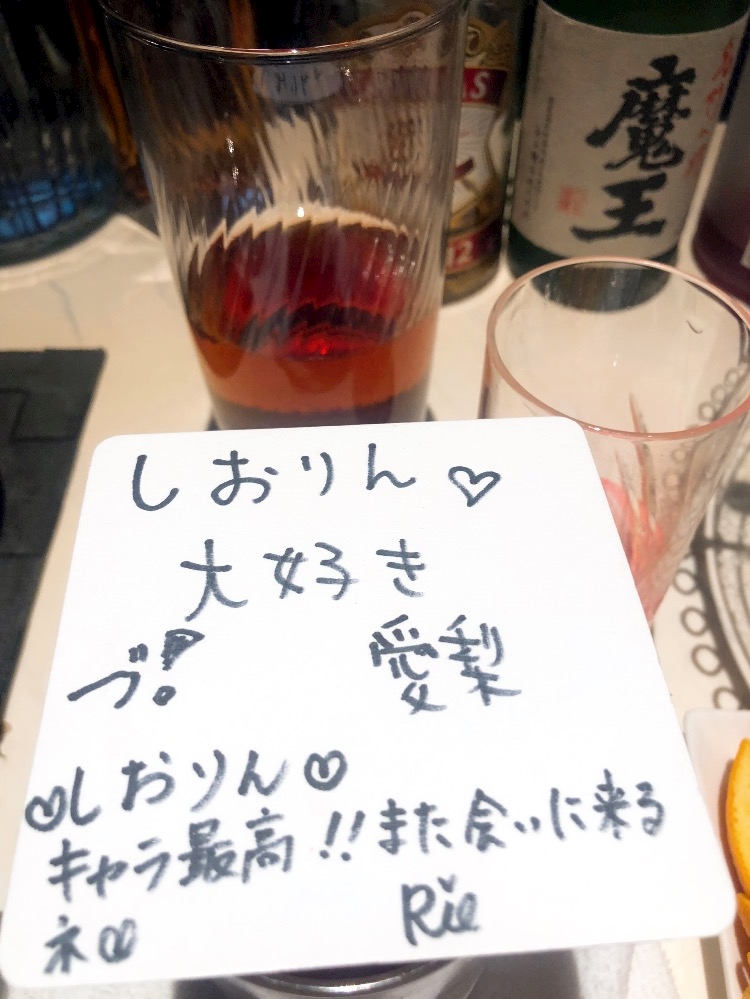 魔王
しおりん♡
大好き
づ！ 愛梨
♡しおりん♡
キャラ最高!!また会いに来る
ネ♡ Rie